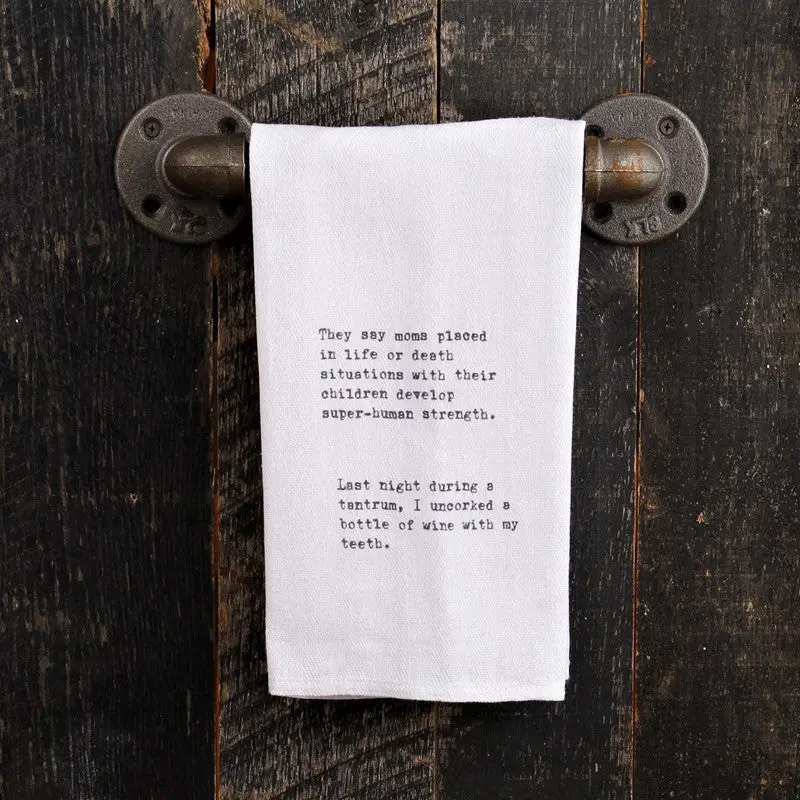 They say moms placed
in life or death
situations with their
children develop
super-human strength.
Last night during a
tantrum, I uncorked a
bottle of wine with my
teeth.